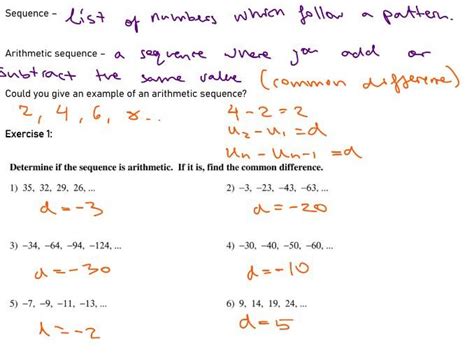 Sequence – List of numbers which follow a pattern.
Arithmetic sequence – a sequence where you add or
subtract the same value (common difference)
Could you give an example of an arithmetic sequence?
2, 4, 6, 8... 4-2=2
Exercise 1: u₂-u₁=d
uₙ-uₙ₋₁=d
Determine if the sequence is arithmetic. If it is, find the common difference.
1) 35, 32, 29, 26, ... 2) –3, –23, –43, –63, ...
d=-3 d=-20
3) –34, –64, –94, –124, ... 4) –30, –40, –50, –60, ...
d=-30 d=-10
5) –7, –9, –11, –13, ... 6) 9, 14, 19, 24, ...
d=-2 d=5